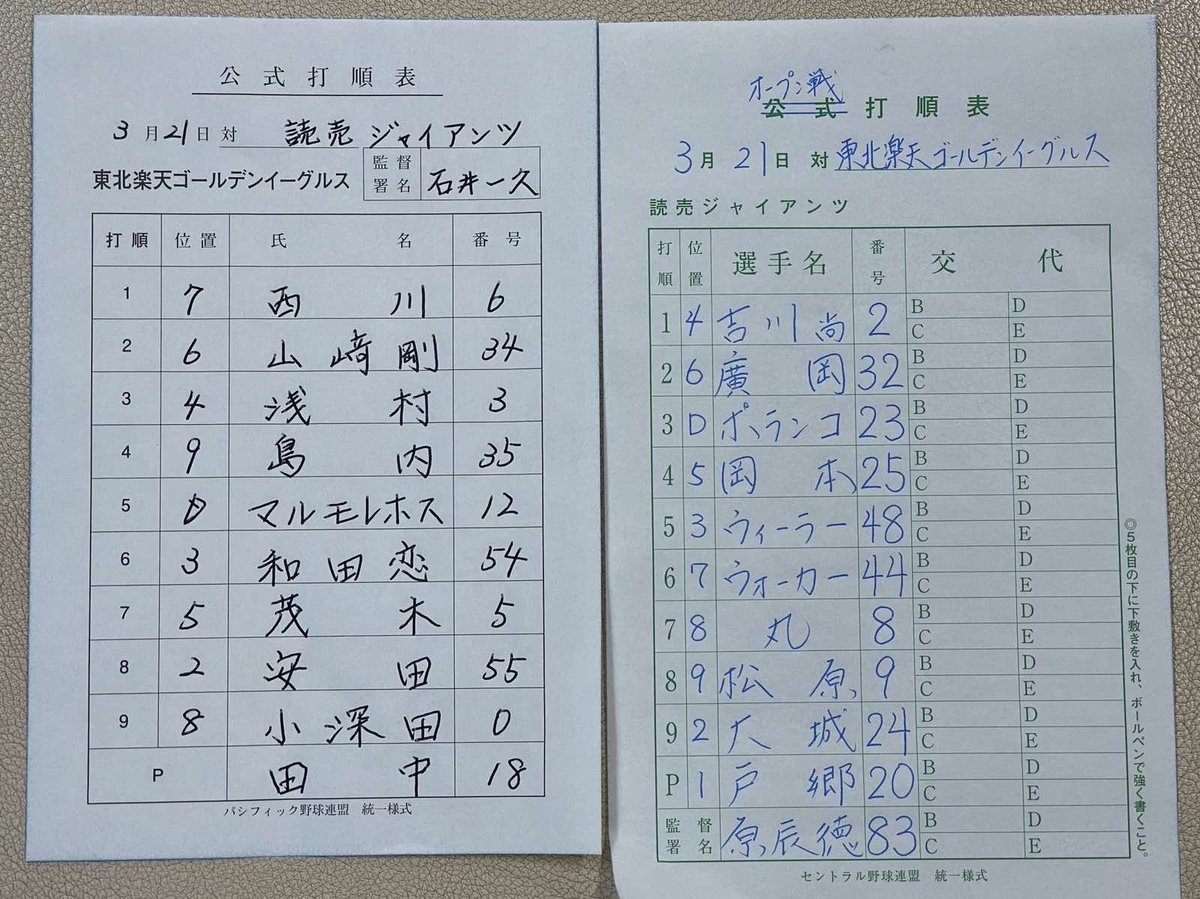 公式打順表
3月21日対 読売ジャイアンツ
東北楽天ゴールデンイーグルス 監督署名 石井一久
打順 位置 氏名 番号
1 7 西川 6
2 6 山﨑剛 34
3 4 浅村 3
4 9 島内 35
5 D マルモレホス 12
6 3 和田恋 54
7 5 茂木 5
8 2 安田 55
9 8 小深田 0
P 田中 18
パシフィック野球連盟 統一様式
オープン戦
公式打順表
3月21日対東北楽天ゴールデンイーグルス
読売ジャイアンツ
打順 位置 選手名 番号 交代
1 4 吉川尚 2 B D
C E
2 6 廣岡 32 B D
C E
3 D ポランコ 23 B D
C E
4 5 岡本 25 B D
C E
5 3 ウィーラー 48 B D
C E
6 7 ウォーカー 44 B D
C E
7 8 丸 8 B D
C E
8 9 松原 9 B D
C E
9 2 大城 24 B D
C E
P 1 戸郷 20 B D
C E
監督署名 原辰徳 83 B D
C E
セントラル野球連盟 統一様式
◎5枚目の下に下敷きを入れ、ボールペンで強く書くこと。